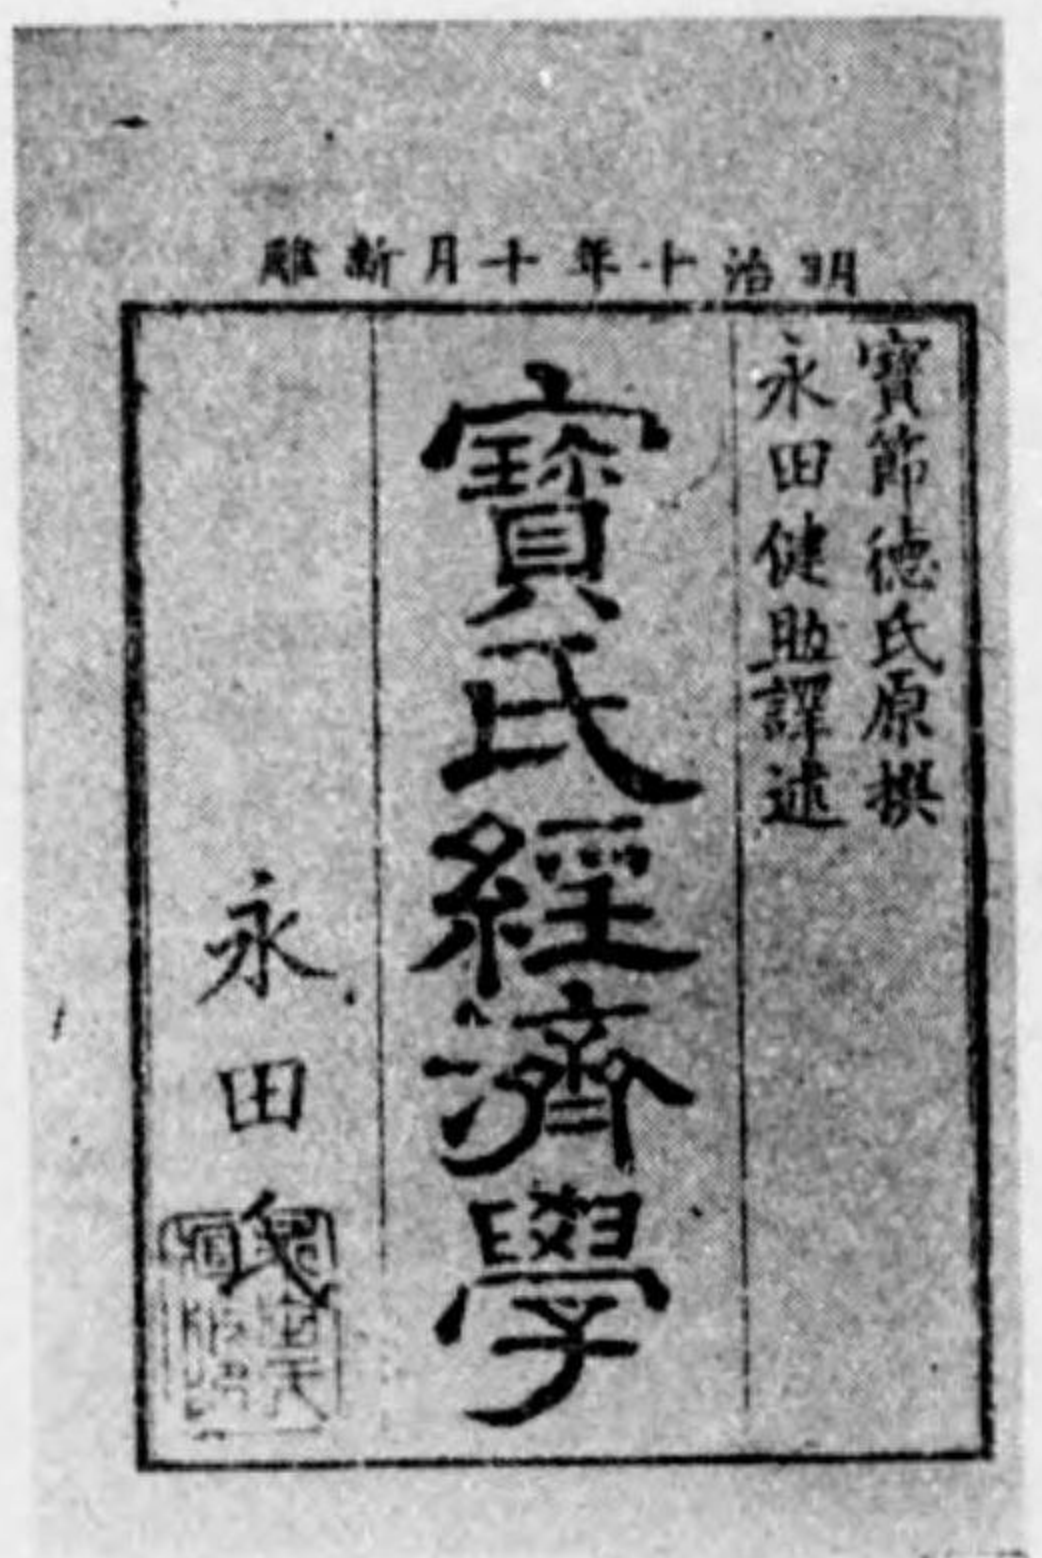 明治十年十月新雕
寶節德氏原撰
永田健助譯述
寶氏經濟學
永田氏